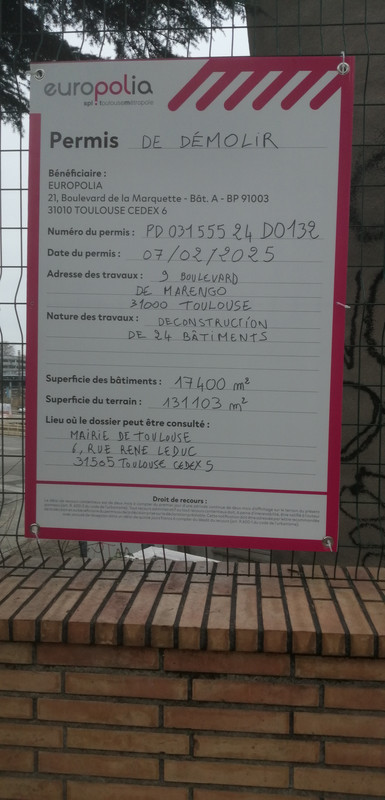 europolia
spl toulousemétropole
Permis DE DÉMOLIR
Bénéficiaire :
EUROPOLIA
21, Boulevard de la Marquette - Bât. A - BP 91003
31010 TOULOUSE CEDEX 6
Numéro du permis : PD 031555 24 D0132
Date du permis : 07/02/2025
Adresse des travaux : 9 BOULEVARD
DE MARENGO
31000 TOULOUSE
Nature des travaux : DECONSTRUCTION
DE 24 BÂTIMENTS
Superficie des bâtiments : 17400 m²
Superficie du terrain : 131103 m²
Lieu où le dossier peut être consulté :
MAIRIE DE TOULOUSE
6, RUE RENE LEDUC
31505 TOULOUSE CEDEX 5
Droit de recours :